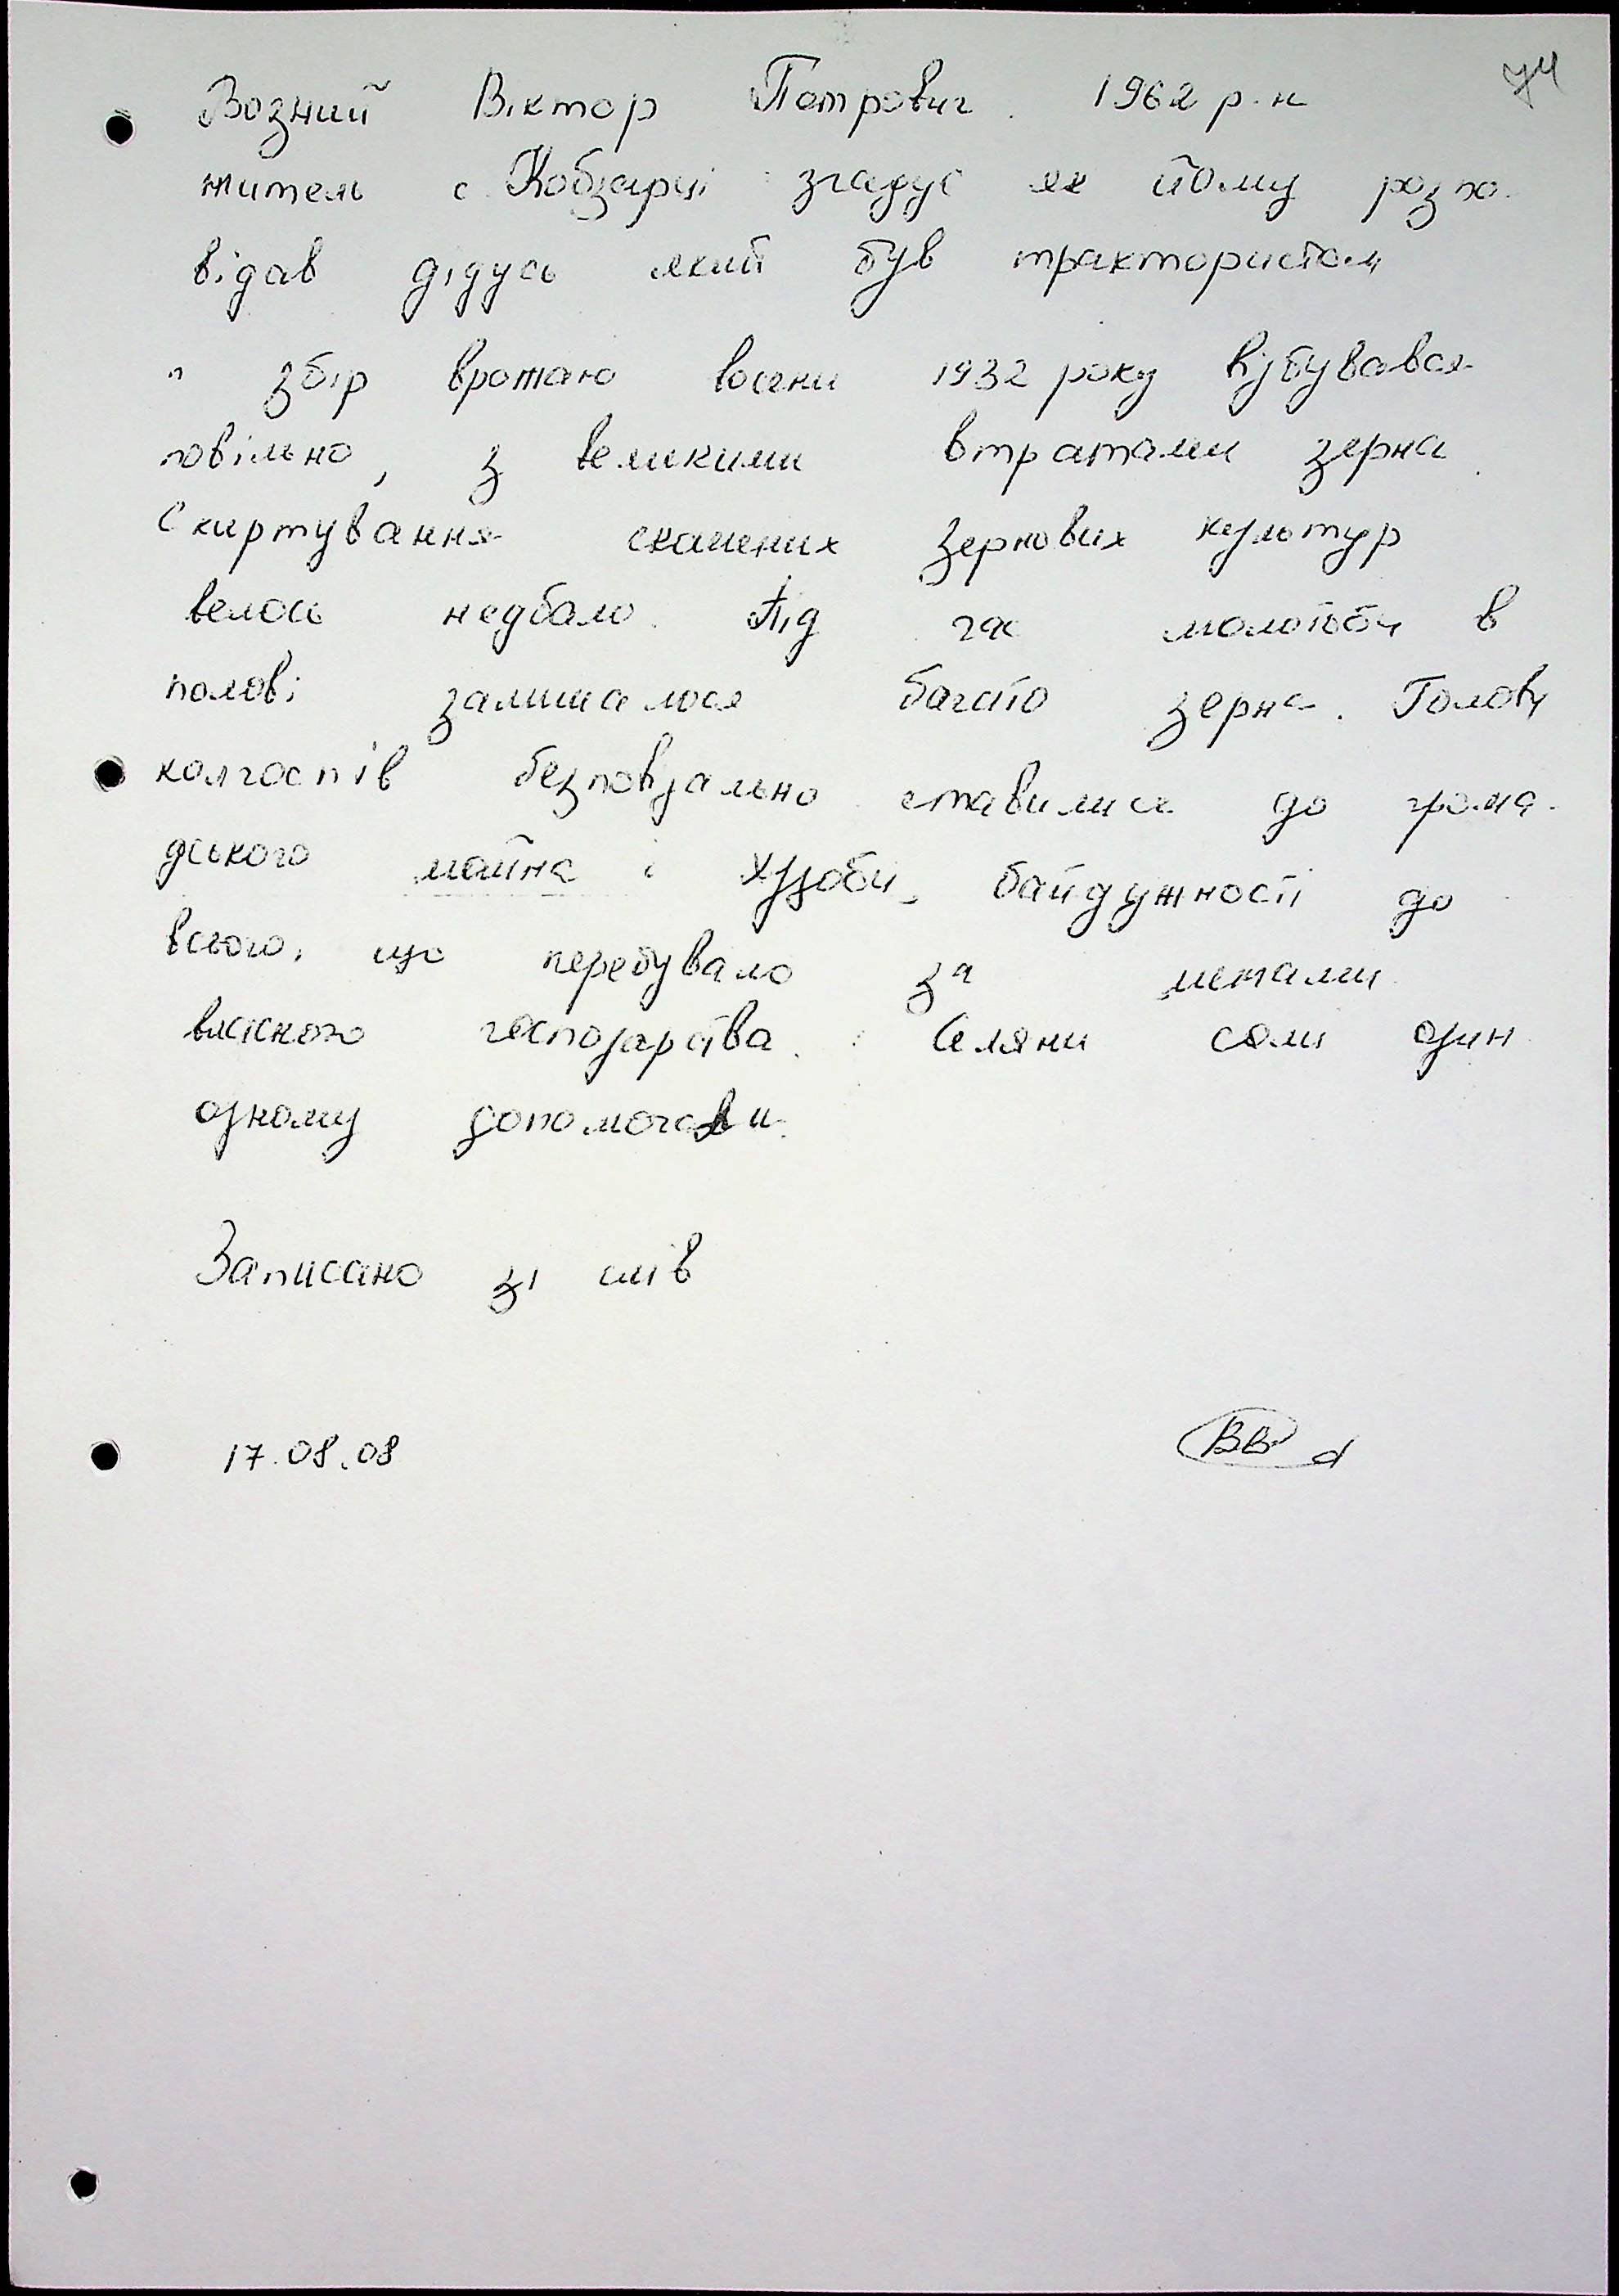 74
Возний Віктор Петрович. 1962 р.н
житель с. Кобзарці згадує як йому розпо-
відав дідусь який був трактористом
" збір врожаю восени 1932 року відбувався
повільно, з великими втратами зерна.
Скиртування скошених зернових культур
велось недбало. Під час молотьби в
полові залишалося багато зерна. Голови
колгоспів безповідально ставилися до грома-
дського майна і худоби, байдужності до
всього, що перебувало за межами
власного господарства. Селяни самі один
одному допомагали.
Записано зі слів
17.08.08